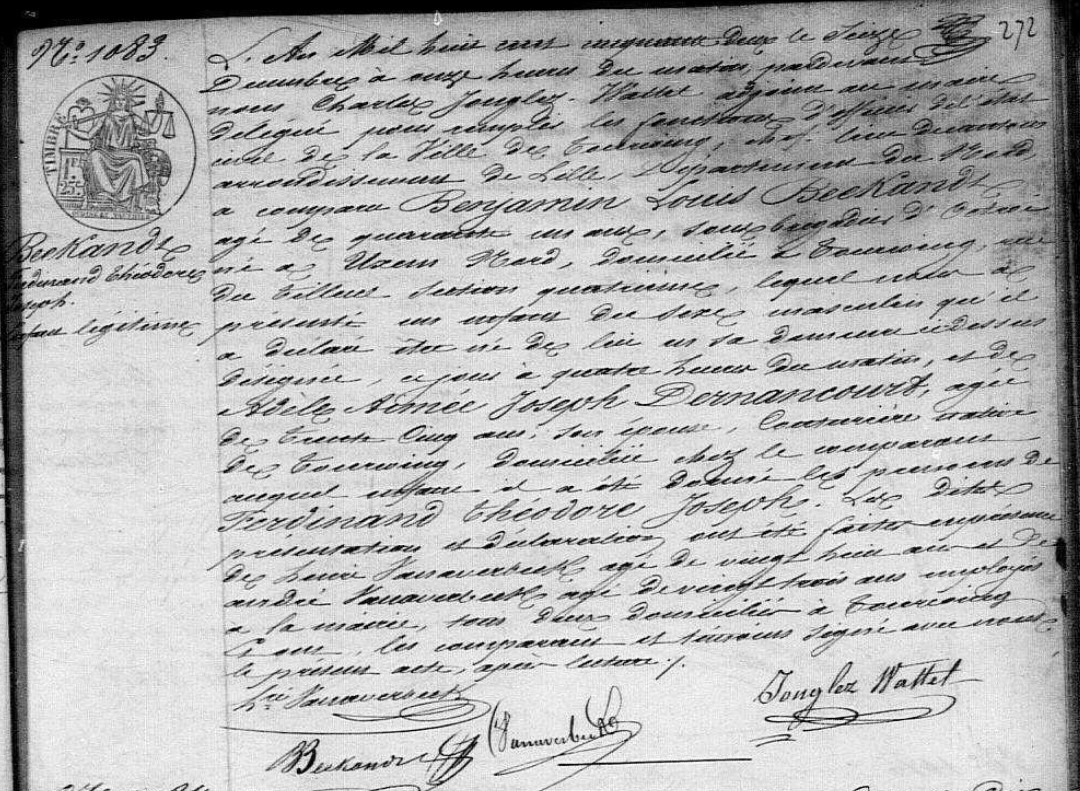 N.o 1083.
272
TIMBRE
1F.
25c
BeeKandt
Ferdinand théodore
Joseph.
enfant légitime
L'An Mil huit cent cinquante deux le Seize
Décembre à onze heures du matin, pardevant
nous Charles Jonglez-Wattel adjoint au maire
délégué pour remplir les fonctions d'officier de l'état
civil de la Ville de Tourcoing, chef-lieu de canton
arrondissement de Lille, Département du Nord,
a comparu Benjamin Louis BeeKandt
agé de quarante un ans, sous brigadier d'Octroi
né à Uxem Nord, domicilié à tourcoing, rue
du tilleul section quatrième, lequel nous a
présenté un enfant du sexe masculin qu'il
a déclaré être né de lui en sa demeure ci-dessus
désignée, ce jour à quatre heures du matin, et de
Adèle Aimée Joseph Dernancourt, agée
de trente Cinq ans, son épouse, Couturière native
de tourcoing, domiciliée chez le comparant
auquel enfant il a été donné les prénoms de
Ferdinand théodore Joseph. Les dites
présentation et déclaration ont été faites en présence
de henri Vanaverbeck agé de vingt huit ans et de
andré Vanaverbeck agé de vingt trois ans employés
a la mairie, tous deux domiciliés à tourcoing
Et ont, les comparant et témoins signé avec nous
le présent acte, après lecture ./.
h.ri Vanaverbeck
Jonglez Wattel
Vanaverbeck
BeeKandt